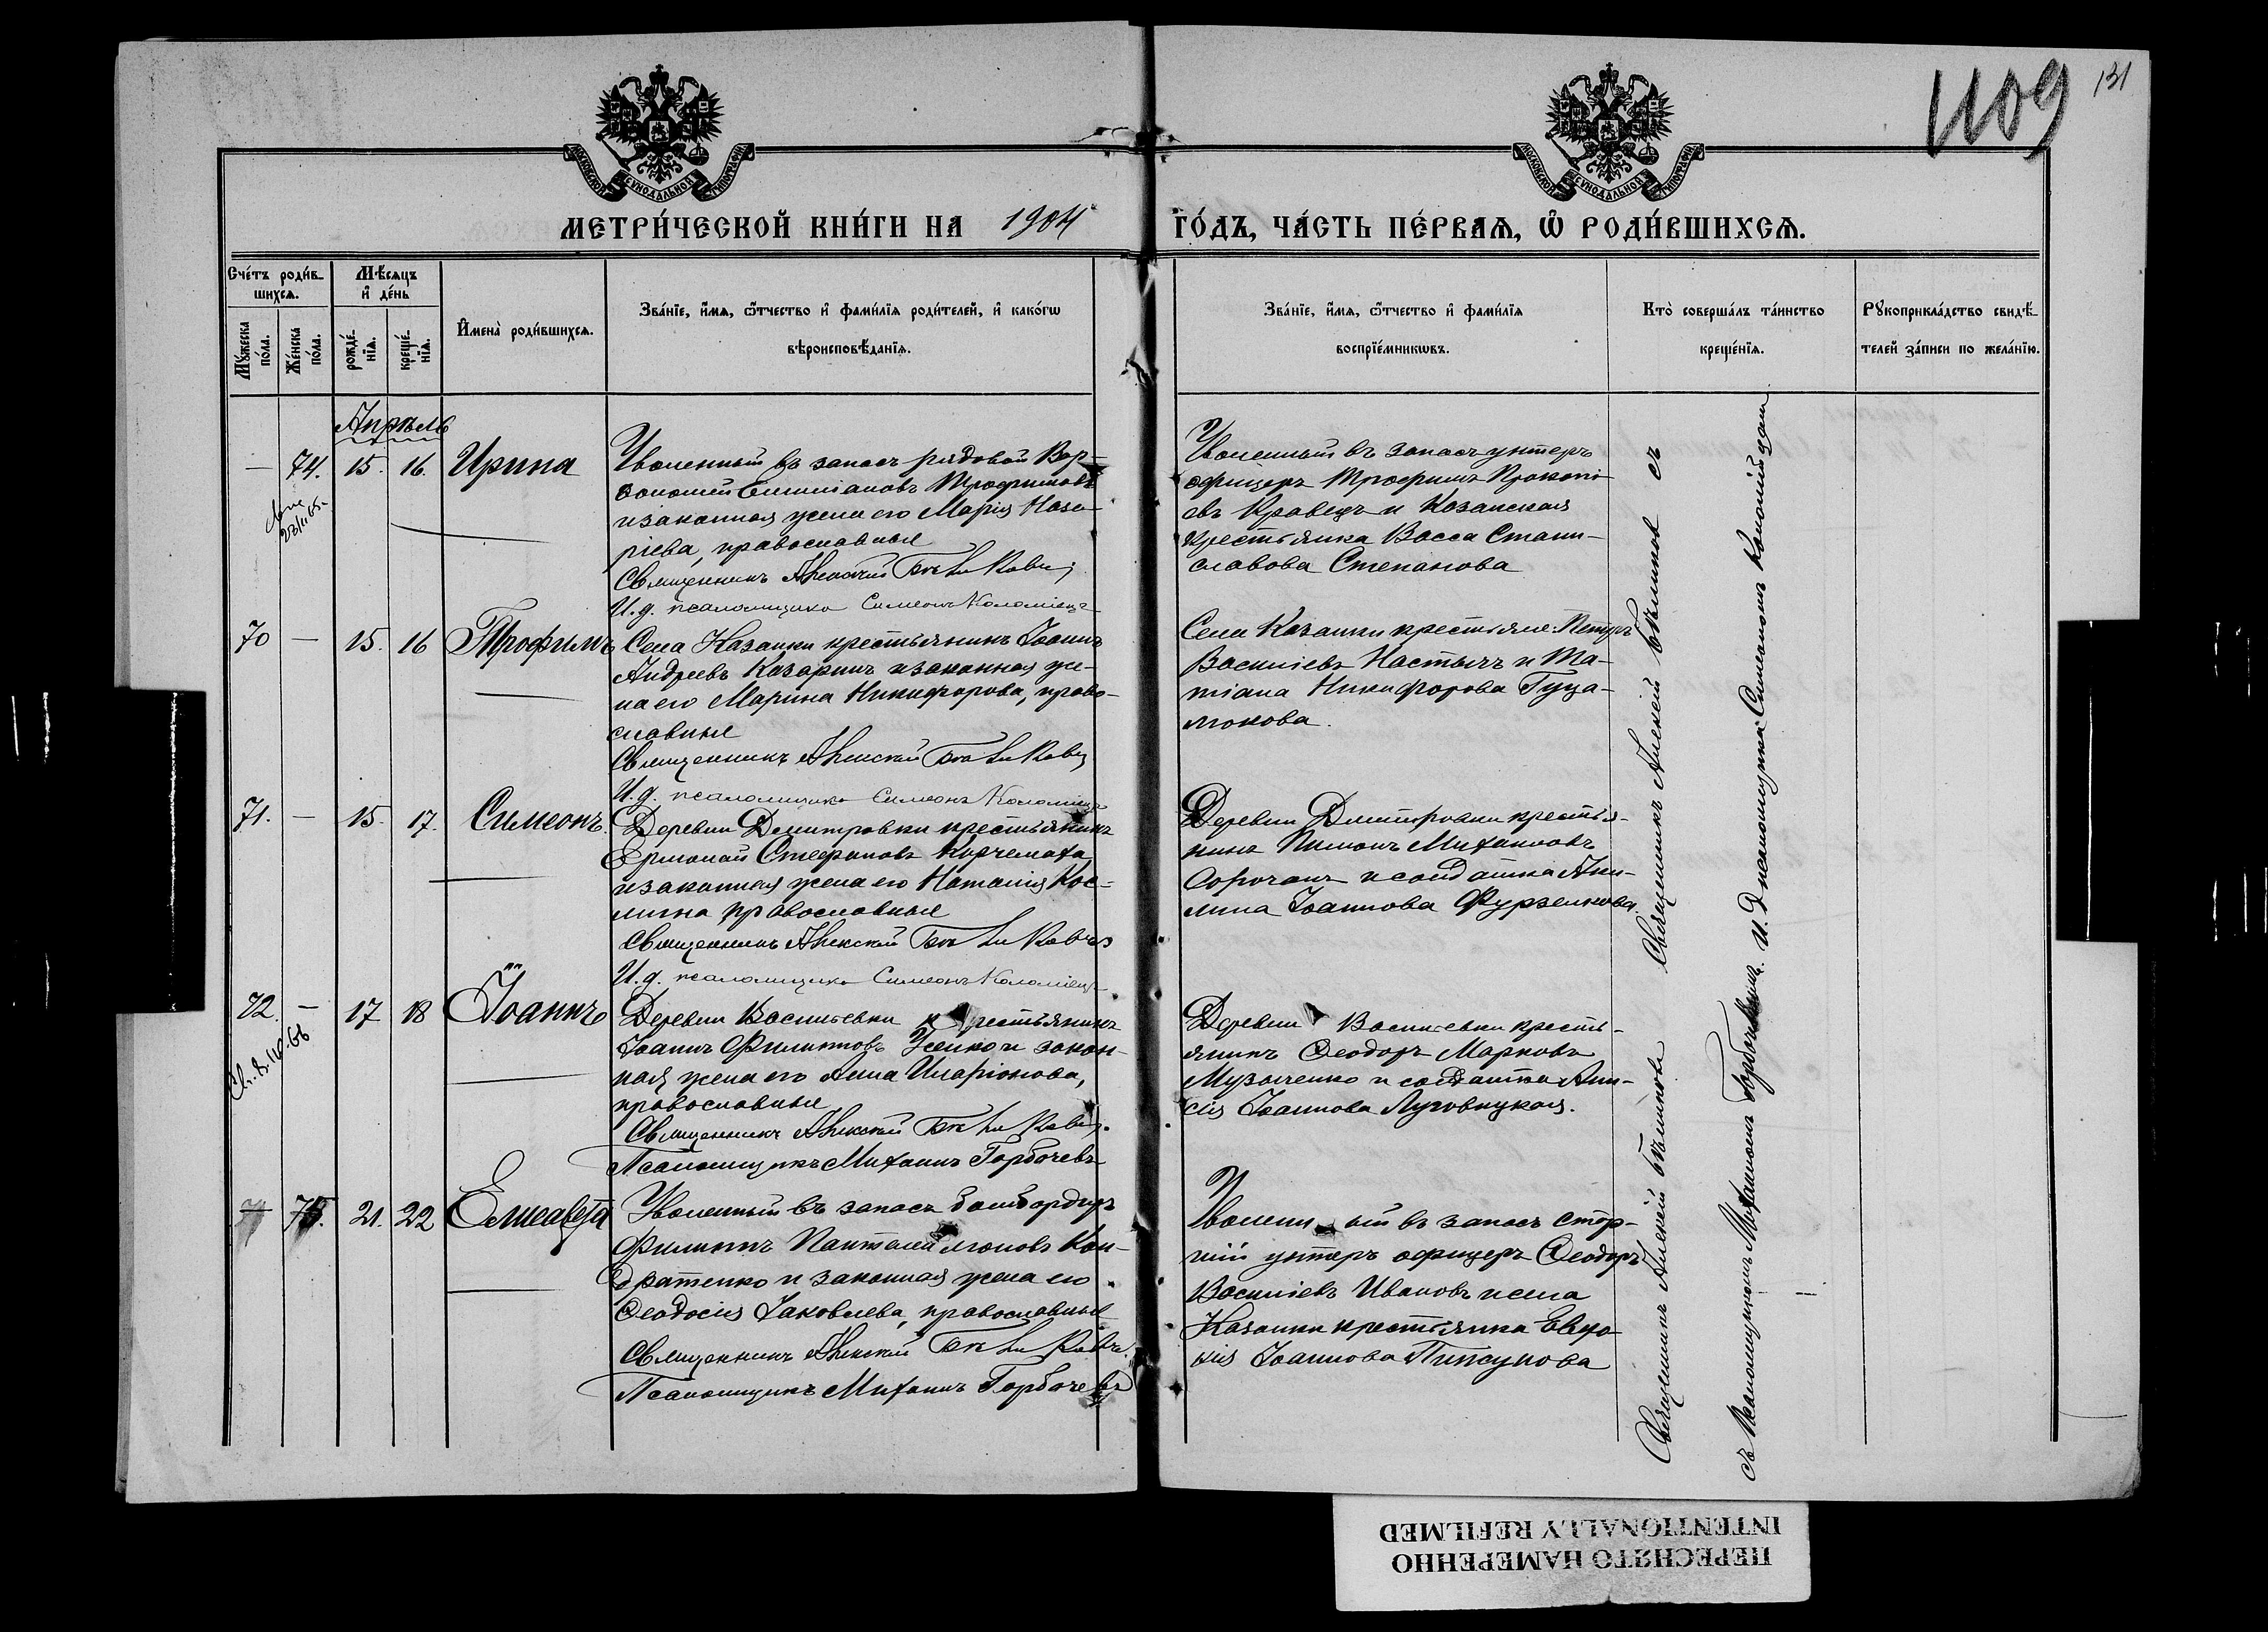 1109 131
МОСКОВСКОЙ СѴНОДАЛЬНОЙ ТИПОГРАФІИ
МОСКОВСКОЙ СѴНОДАЛЬНОЙ ТИПОГРАФІИ
МЕТРИ́ЧЕСКОЙ КНИ́ГИ НА 1904 ГО́ДЪ, ЧА́СТЬ ПЕ́РВАЯ, Ѽ РОДИ́ВШИХСЯ.
Сче́тъ роди́в-
шихсѧ.
Мꙋ́жеска
по́ла.
Же́нска
по́ла.
Мѣ́сѧцъ
и҆ де́нь
рожде́-
нїѧ.
креще́-
нїѧ.
И҆мена̀ роди́вшихсѧ.
Зва́нїе, и҆́мѧ, ѻ҆́тчество и҆ фами́лїѧ роди́телей, и҆ како́гѡ
вѣроисповѣ́данїѧ.
Зва́нїе, и҆́мѧ, ѻ҆́тчество и҆ фами́лїѧ
воспрїе́мникѡвъ.
Кто̀ соверша́лъ та́инство
креще́нїѧ.
Рꙋкоприкла́дство свидѣ́-
телей за́писи по жела́нїю.
Апрѣль
— 74. 15. 16. Ирина
Уволенный въ запасъ рядовой Вар-
ѳоломей Емиліановъ Трофимовъ
и законная жена его Марія Наза-
ріева, православные
Священникъ Алексій
И.д. псаломщика Симеонъ Коломіецъ
Уволенный въ запасъ унтеръ
офицеръ Трофимъ Прокопі-
евъ Кравецъ и Казанская
крестьянка Васса Стани-
славова Степанова
70 — 15. 16 Трофимъ
Села Казанки крестьянинъ Іоаннъ
Андреевъ Казаринъ и законная же-
на его Марина Никифорова, право-
славные
Священникъ Алексій
И.д. псаломщика Симеонъ Коломіецъ
Села Казанки крестьяне Петръ
Василіевъ Настычъ и Та-
тіана Никифорова Гуца-
люкова.
71. — 15. 17. Симеонъ.
Деревни Дмитровки крестьянинъ
Ермолай Стефановъ Корчемаха
и законная жена его Наталія Кос-
мина православные
Священникъ Алексій
И.д. псаломщика Симеонъ Коломіецъ
Деревни Дмитровки крестья-
нинъ Пименъ Михаиловъ
Сорочанъ и солдатка Аки-
лина Іоаннова
72. — 17 18 Іоаннъ
Деревни Василевки крестьянинъ
Іоаннъ Филипповъ Усенко и закон-
ная жена его Анна Иларіонова,
православные
Священникъ Алексій
Псаломщикъ Михаилъ Горбачевъ
Деревни Василевки кресть-
янинъ Ѳеодоръ Марковъ
Музыченко и солдатка Ани-
сія Іоаннова Луговицкая.
75. 21. 22 Елисавета
Уволенный въ запасъ бомбардиръ
Филиппъ Пантелеимоновъ Кон-
дратенко и законная жена его
Ѳеодосія Іаковлева, православные
Священникъ Алексій
Псаломщикъ Михаилъ Горбачевъ
Уволенный въ запасъ стар-
шій унтеръ офицеръ Ѳеодоръ
Василіевъ Ивановъ и села
Казанки крестьянка Евдо-
кія Іоаннова
Священникъ Алексій Бѣликовъ съ
и.д. псаломщика Симеономъ Коломійцемъ
Священникъ Алексій Бѣликовъ
съ псаломщикомъ Михаиломъ Горбачевымъ.
ПЕРЕСНЯТО НАМЕРЕННО
INTENTIONALLY REFILMED